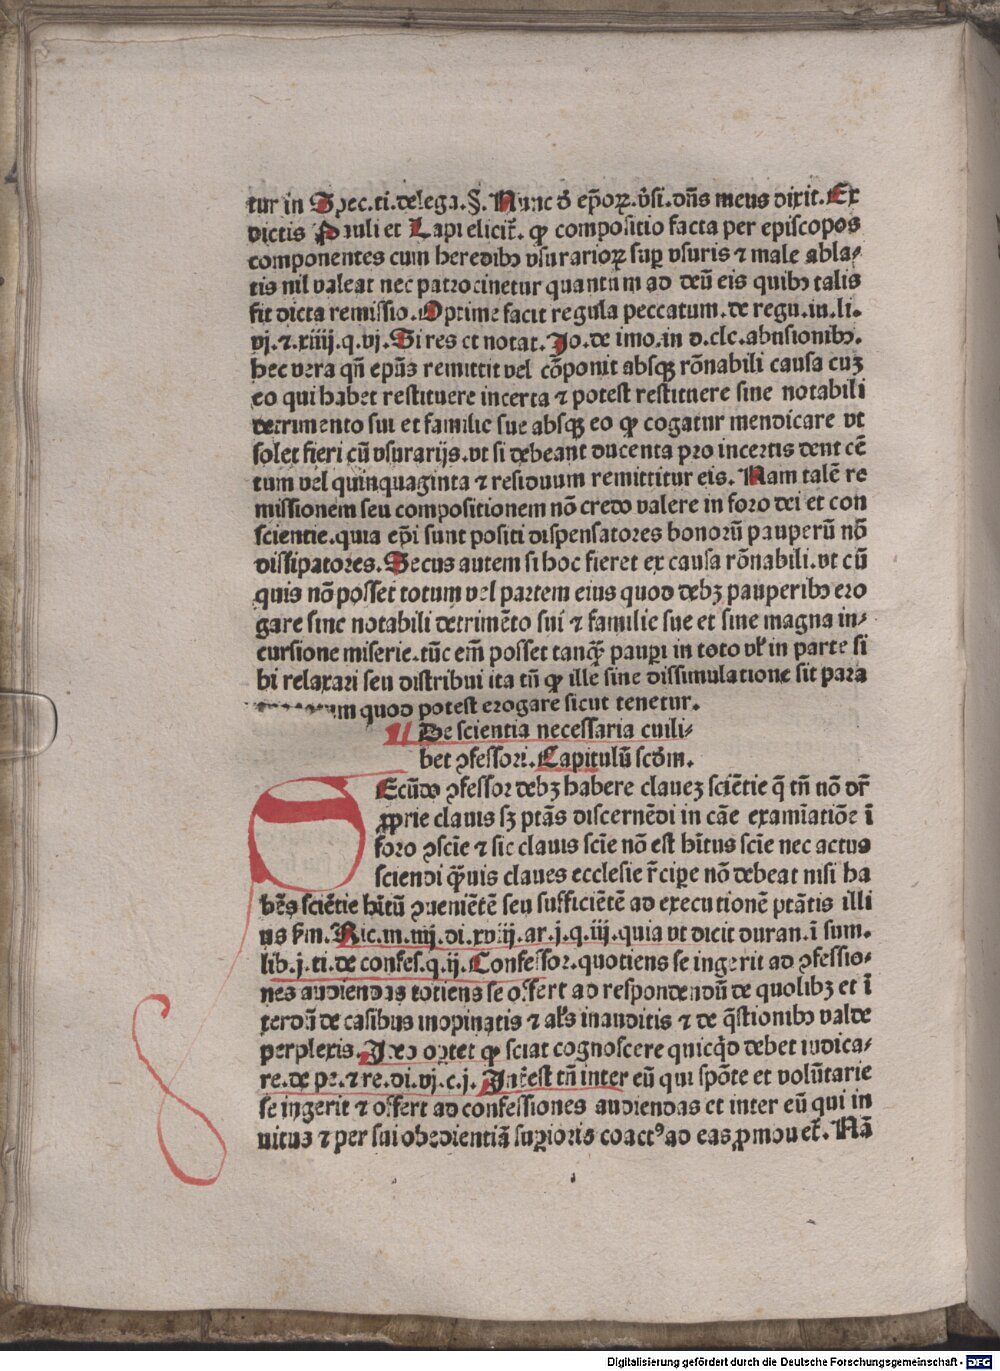 tur in Spec.ti.delega.§. Nunc ð ep̄oꝝ.v̉si.dn̄s meus dixit.Ex
dictis Pauli et Lapi elicit᷑. ꝙ compositio facta per episcopos
componentes cum heredibꝰ vsurarioꝝ suꝑ vsuris ⁊ male abla⸗
tis nil valeat nec patrocinetur quantum ad deū eis quibꝰ talis
fit dicta remissio.Optime facit regula peccatum.de regu.iu.li.
vj.⁊.xiiij.q.vj.Si res et notat.Jo.de imo.in d.cle.abusionibꝰ.
hec vera qn̄ epūs remittit vel cōponit absqꝫ rōnabili causa cuꝫ
eo qui habet restituere incerta ⁊ potest restituere sine notabili
detrimento sui et familie sue absqꝫ eo ꝙ cogatur mendicare vt
solet fieri cū vsurarijs.vt si debeant ducenta pro incertis dent cē
tum vel quinquaginta ⁊ residuum remittitur eis. Nam talē re
missionem seu compositionem nō credo valere in foro dei et con
scientie.quia ep̄i sunt positi dispensatores bonorū pauperū nō
dissipatores.Secus autem si hoc fieret ex causa rōnabili.vt cū
quis nō posset totum vel partem eius quod debꝫ pauperibꝰ ero
gare sine notabili detrimēto sui ⁊ familie sue et sine magna in⸗
cursione miserie.tūc em̄ posset tanqꝫ̄ pauꝑi in toto vl̓ in parte si
bi relaxari seu distribui ita tn̄ ꝙ ille sine dissimulatione sit para
um quod potest erogare sicut tenetur.
¶ De scientia necessaria cuili⸗
bet ꝯfessori.Capitulū scðm.
SEcūdo ꝯfessor debꝫ habere claueꝫ sciētie q̄ tn̄ nō dr̄
ꝓprie clauis sꝫ ptās discernēdi in cāe examīatiōe ī
foro ꝯscīe ⁊ sic clauis scīe nō est hītus scīe nec actus
sciendi q̄ꝫuis claues ecclesie r̄ciꝑe nō debeat nisi ha
bēs sciētie hītū ꝯueniētē seu sufficiētē ad executionē ptātis illi
us ẜm.Ric.in.iiij.di.xviij.ar.j.q.iij.quia vt dicit duran.ī sum.
lib.j.ti.de confes.q.ij.Confessor.quotiens se ingerit ad ꝯfessio⸗
nes audiendas totiens se offert ad respondendū de quolibꝫ et ī
terdū de casibus inopinatis ⁊ al̓s inauditis ⁊ de q̄stionibꝰ valde
perplexis.Ideo oꝑtet ꝙ sciat cognoscere quicq̇d debet iudica⸗
re.de pe.⁊ re.di.vj.c.j. Interest tn̄ inter eū qui spōte et volūtarie
se ingerit ⁊ offert ad confessiones audiendas et inter eū qui in
uitus ⁊ per sui obedientiā suꝑioris coactꝰ ad eas ꝓmouet᷑.Nā
Digitalisierung gefördert durch die Deutsche Forschungsgemeinschaft - DFG